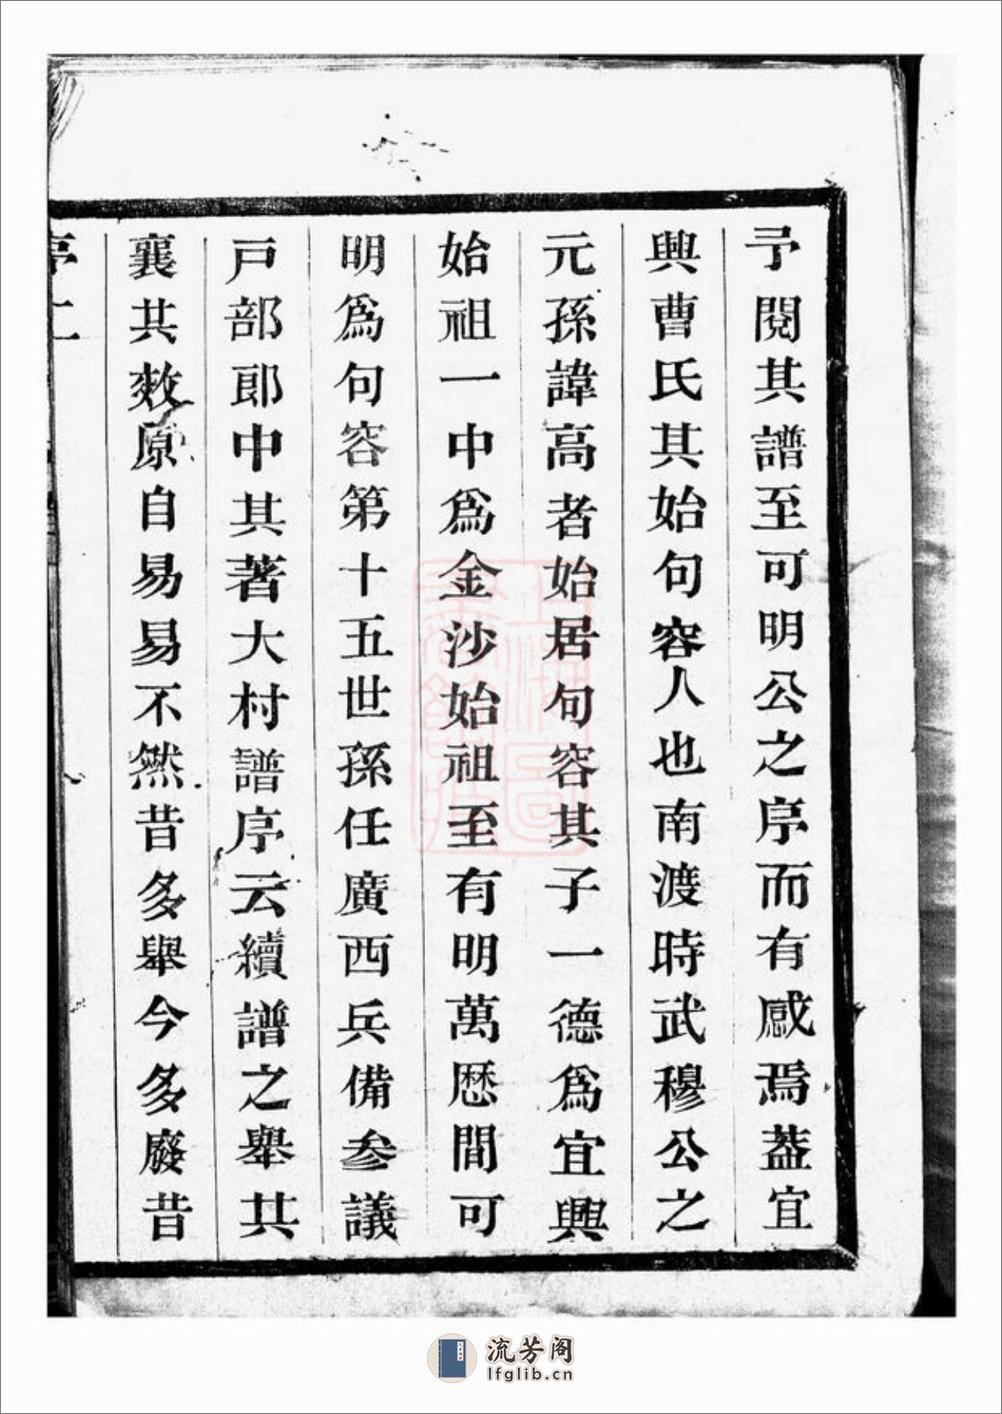 予閱其譜至可明公之序而有感焉葢宜
興曹氏其始句容人也南渡時武穆公之
元孫諱高者始居句容其子一德爲宜興
始祖一中爲金沙始祖至有明萬歷間可
明爲句容第十五世孫任廣西兵備參議
戸部郎中其著大村譜序云續譜之舉其
襄其效原自易易不然昔多舉今多廢昔
序二
上海圖
流芳阁
lfglib.cn